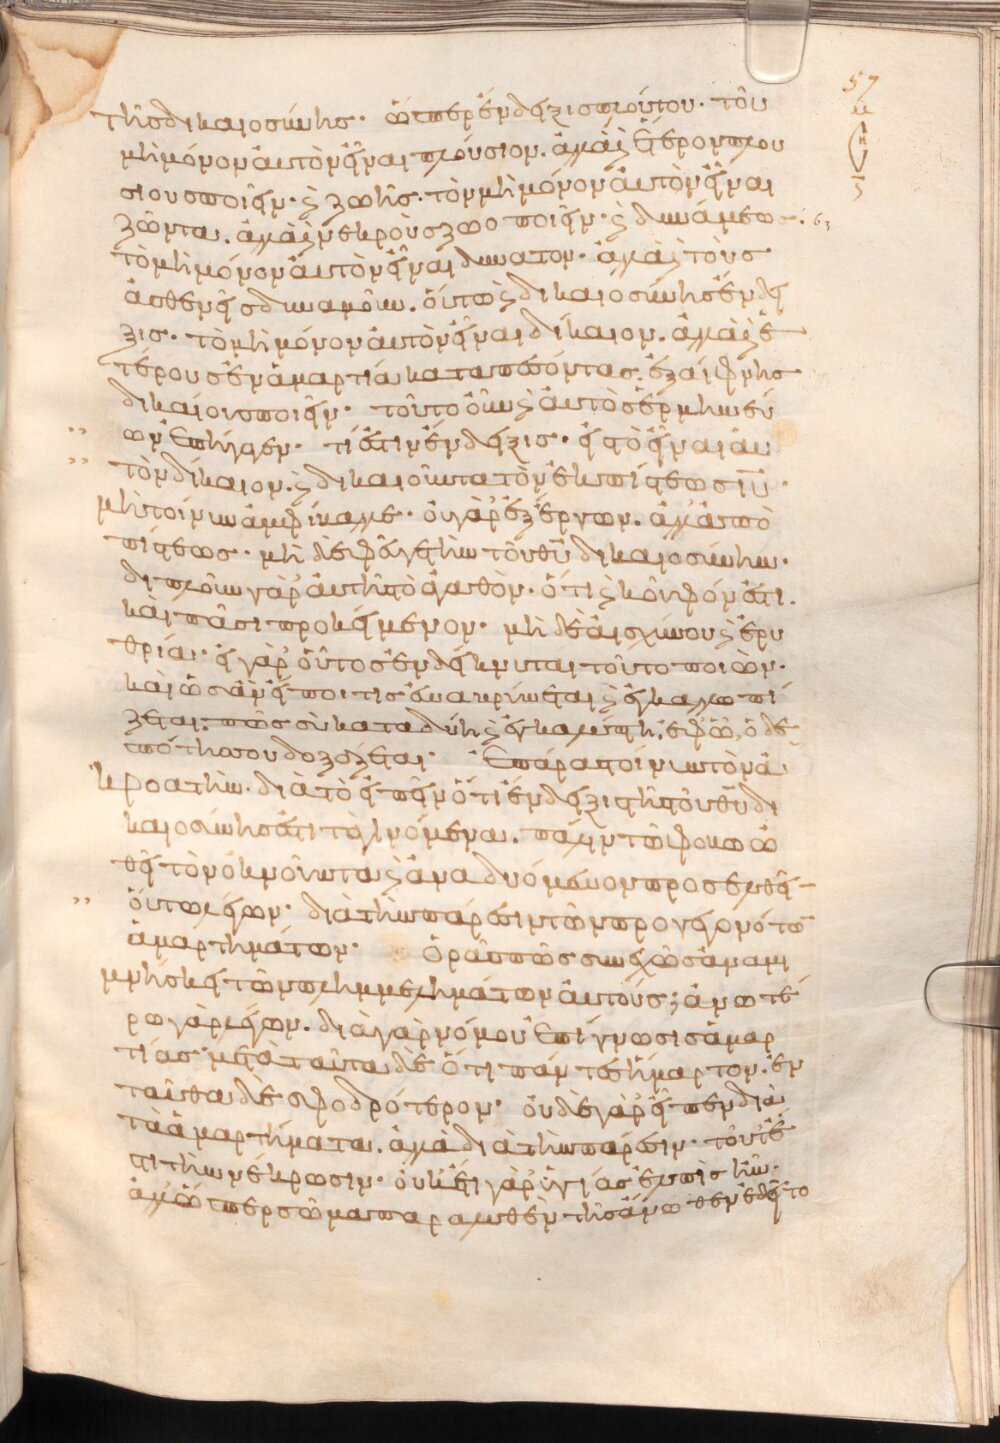 τῆς δικαιοσύνης. ὥσπερ ἔνδειξις πλούτου. τοῦ
μὴ μόνον αὐτὸν εἶναι πλούσιον. ἀλλὰ καὶ ἕτερον πλου
σίους ποιεῖν. καὶ ζωῆς. τὸν μὴ μόνον αὐτὸν εἶναι
ζῶντα. ἀλλὰ καὶ νεκροὺς ζωοποιεῖν. καὶ δυνάμεως.
τὸ μὴ μόνον αὐτὸν εἶναι δυνατον. ἀλλὰ καὶ τοὺς
ἀσθενεῖς δυναμοῦν. οὕτω καὶ δικαιοσύνης ἔνδει
ξις. τὸ μὴ μόνον αὐτὸν εἶναι δίκαιον. ἀλλὰ καὶ ἑ
τέρους ἐν ἁμαρτία καταπεσόντας. ἐξαίφνης
δικαίους ποιεῖν. τοῦτο οὖν καὶ αὐτὸς ἑρμηνεύ
ων ἐπήγαγεν. τί ἐστιν ἔνδειξις. εἰς τὸ εἶναι αὐ
τὸν δίκαιον. καὶ δικαιοῦντα τὸν ἐκ πίστεως ιυ.
μὴ τοίνυν ἀμφίβαλλε. οὐ γὰρ ἐξ ἔργων. ἀλλ' ἀπὸ
πίστεως. μὴ δὲ φύγε τὴν τοῦ θυ δικαιοσύνην.
διπλοῦν γὰρ αὐτῆ τὸ ἀγαθὸν. ὅτι καὶ κοῦφόν ἐστι.
καὶ πᾶσι προκείμενον. μὴ δὲ αἰσχύνου καὶ ἐρυ
θρία. εἰ γὰρ οὗτος ἐνδείκνυται τοῦτο ποιῶν.
καὶ ὡς ἂν εἴποι τις ἐναβρύνεται καὶ ἐγκαλλωπί
ζεται. πῶς σὺ καταδύη καὶ ἐγκαλύπτη, ἐφ' ὧ, ὁ δε
σπότης σου δοξάζεται. Ἐπάρας τοίνυν τὸν ἀ
κροατὴν. διὰ τὸ εἰπεῖν ὅτι ἔνδειξις τῆς τοῦ θυ δι
καιοσύνης ἐστι τὰ γινόμενα. πάλιν τῶ φόβω ὠ
θεῖ τὸν ὀκνοῦντα καὶ ἀναδυόμενον προσελθεῖν
οὕτω λέγων. διὰ τὴν πάρεσιν τῶν προγεγονότων
ἁμαρτημάτων. ὁρᾶς πῶς συνεχῶς ἀναμι
μνήσκει τῶν πλημμελημάτων αὐτούς; ἀνωτέ
ρω γὰρ λέγων. διὰ γὰρ νόμου ἐπίγνωσις ἁμαρ
τίας μετὰ ταῦτα δὲ ὅτι πάντες ἥμαρτον. ἐν
ταῦθα δὲ σφοδρότερον. οὐδὲ γὰρ εἶπεν διὰ
τὰ ἁμαρτήματα. ἀλλὰ διὰ τὴν πάρεσιν. τοῦτ' ἔ
στι τὴν νέκρωσιν. οὐκ ἔτι γὰρ ὑγιᾶς ἐλπὶς ἦν.
ἀλλ' ὥσπερ σῶμα παραλυθὲν τῆς ἄνωθεν ἐδεῖτο